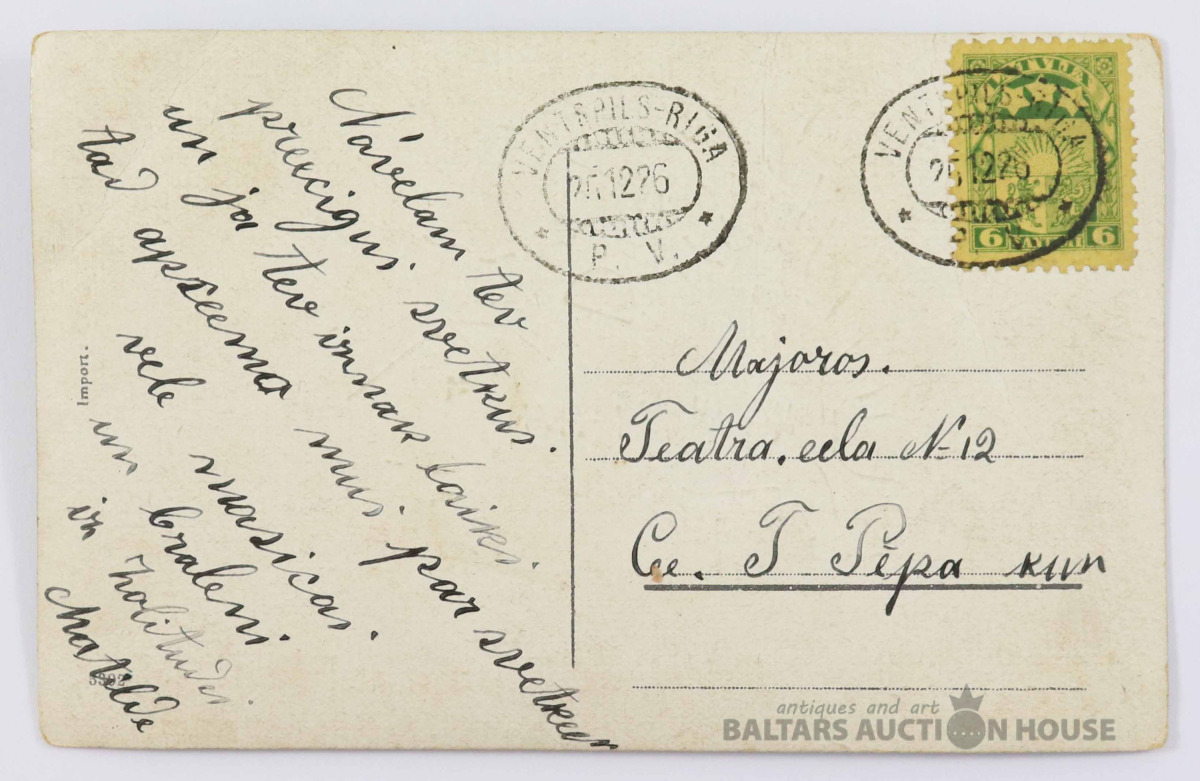 Novelam tev
precigus svetkus.
un ja tev innak laiks.
tad apseema mus. par svetkeem
vele masicas.
un bralem.
in
Matilde
Import.
VENTSPILS-RIGA
25.12.26
P. V.
VENTSPILS-RIGA
25.12.26
P. V.
LATVIJA
6 6
Majoros.
Teatra. eela N-12
Ce. T Pēpa kun
antiques and art
BALTARS AUCTION HOUSE